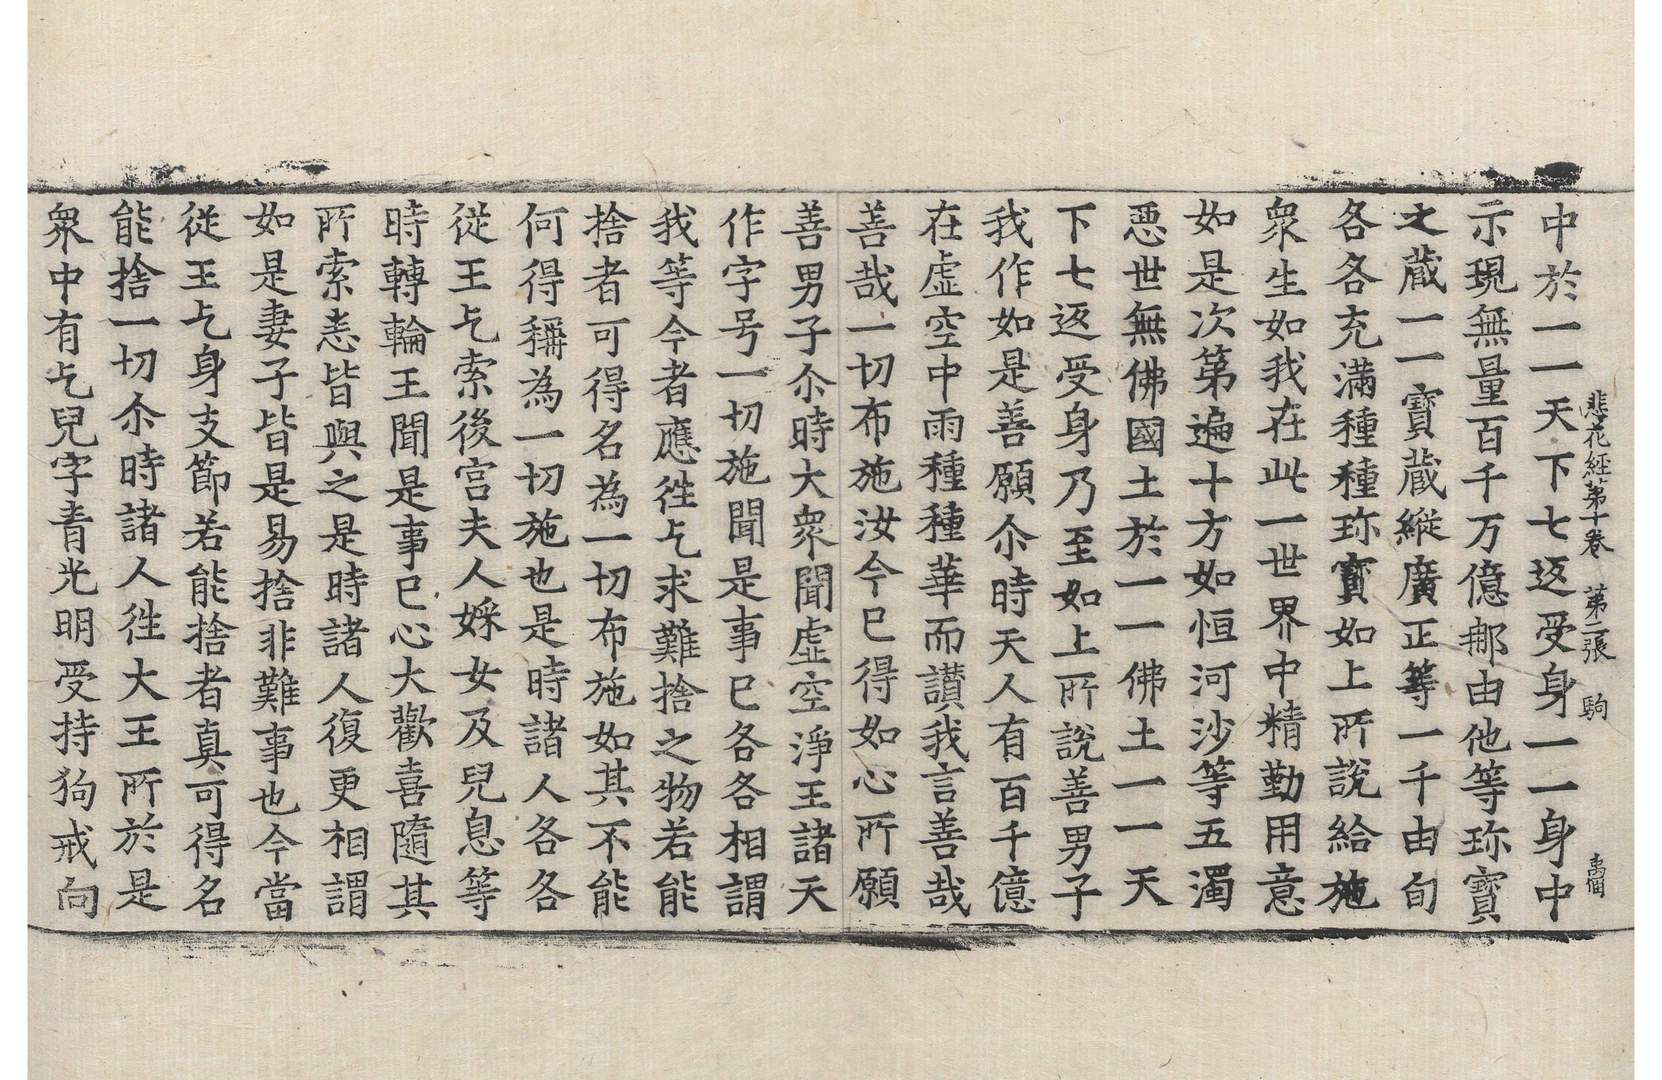 悲花經第十卷 第二張 駒
中於一一天下七返受身一一身中
示現無量百千万億那由他等珎寶
之蔵一一寶蔵縱廣正等一千由旬
各各充滿種種珎寶如上所說給施
衆生如我在此一世界中精勤用意
如是次第遍十方如恒河沙等五濁
惡世無佛國土於一一佛土一一天
下七返受身乃至如上所說善男子
我作如是善願尒時天人有百千億
在虛空中雨種種華而讃我言善哉
善哉一切布施汝今已得如心所願
善男子尒時大衆聞虛空淨王諸天
作字号一切施聞是事已各各相謂
我等今者應徃乞求難捨之物若能
捨者可得名為一切布施如其不能
何得稱為一切施也是時諸人各各
從王乞索後宮夫人婇女及兒息等
時轉輪王聞是事已心大歡喜隨其
所索悉皆與之是時諸人復更相謂
如是妻子皆是易捨非難事也今當
從王乞身支節若能捨者真可得名
能捨一切尒時諸人徃大王所於是
衆中有乞兒字青光明受持狗戒向